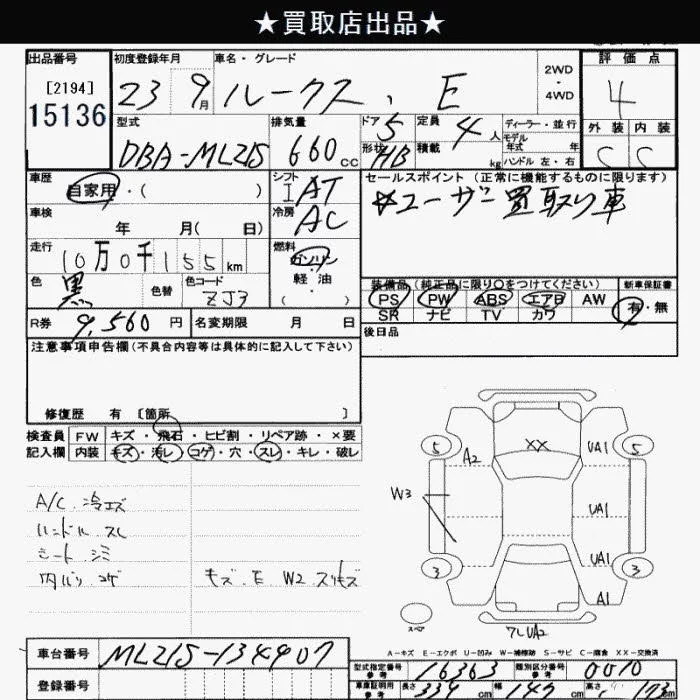 ★買取店出品★
出品番号 初度登録年月 車名・グレード 評価点
[2194] 15136
23 9月 ルークス、 E
2WD・4WD
4
外装 内装
C C
型式 排気量 ドア 定員 ディーラー・並行
DBA-ML21S 660cc 5 4人
モデル年式 年
形状 HB 積載 kg ハンドル 左・右
車歴 シフト セールスポイント (正常に機能するものに限ります)
自家用・( ) I AT ☆ユーザー買取り車
車検 冷房
年 月( 日) AC
走行 燃料
10万0千155km ガソリン
軽油
( ・ )
色 色替 色コード
黒 ZJ3
装備品 (純正品に限り○をつけてください) 新車保証書
PS PW ABS エアB AW 有・無
SR ナビ TV カワ
R券 9,560円 名変期限 月 日
後日品
注意事項申告欄(不具合内容等は具体的に記入して下さい)
修復歴 有 〔箇所 〕
検査員 FW キズ・飛石・ヒビ割・リペア跡・×要
記入欄 内装 キズ・汚レ・コゲ・穴・スレ・キレ・破レ
A/C 冷エズ
ハンドル スレ
シート シミ
内バリ コゲ キズ・E W2 スリキズ
5 A2 XX UA1 5
W3 UA1
3 UA1 3
A1
スペア
フレ UA2
A-キズ E-エクボ U-凹み W-補修跡 S-サビ C-腐食 XX-交換済
車台番号 ML21S-134907
型式指定番号 参考 16363 類別区分番号 参考 0010
登録番号
車庫証明用 参考 長さ 339cm 幅 147cm 高さ 173cm